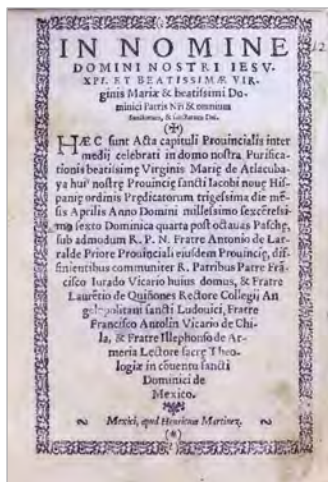 IN NOMINE
DOMINI NOSTRI IESV.
XPI. ET BEATISSIMÆ VIR-
ginis Mariæ & beatissimi Do-
minici Patris Nři & omnium
Sanctorum, & Sanctarum Dei.
(✠)
HÆC sunt Acta capituli Prouincialis inter
medij celebrati in domo nostra Purifica-
tionis beatissimę Virginis Marię de Atlacuba-
ya hui⁹ nostrę Prouincię sancti Iacobi nouę His-
panię ordinis Prędicatorum trigesima die mẽ-
sis Aprilis Anno Domini millesimo sexcẽtesi-
mo sexto Dominica quarta post octauas Paschę,
sub admodum R. P. N. Fratre Antonio de Lar-
ralde Priore Prouinciali eiusdem Prouincię, dif-
finientibus communiter R. Patribus Patre Frã-
cisco Iurado Vicario huius domus, & Fratre
Laurẽtio de Quiñones Rectore Collegij An
gelopolitani sancti Ludouici, Fratre
Francisco Antolin Vicario de Chi-
la, & Fratre Illephonso de Ar-
meria Lectore sacrę Theo-
logiæ in cõuentu sancti
Dominici de
Mexico.
Mexici, apud Henricum Martinez.
(*)